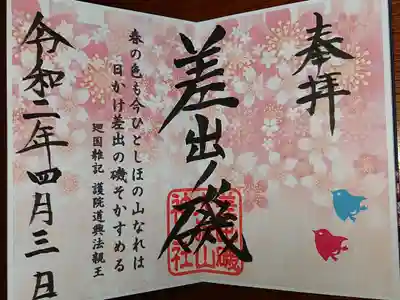 奉拝
差出ノ磯
差出磯
大嶽山
神社
春の色も今ひとしほの山なれは
日かけ差出の磯そかすめる
廻国雑記 護院道興法親王
令和二年四月三日